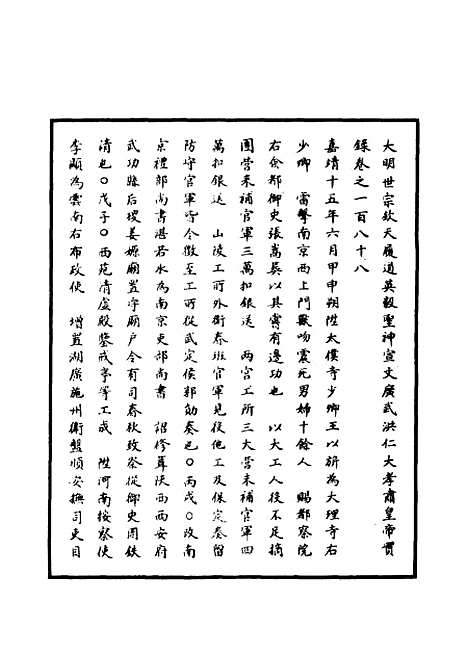 大明世宗欽天履道英毅聖神宣文廣武洪仁大孝肅皇帝實
錄卷之一百八十八
嘉靖十五年六月甲申朔陞太僕寺少卿王以旂為大理寺右
少卿　雷擊南京西上門獸吻震死男婦十餘人　賜都察院
右僉都御史張嵩吳以其嘗有邊功也　以大工人役不足摘
團營未補官軍三萬扣銀送　兩宮工所三大營未補官軍四
萬扣銀送　山陵工所外衛春班官軍見役他工及保定春留
防守官軍皆令散至工所從武定侯郭勛奏也○丙戌○改南
京禮部尚書湛若水為南京吏部尚書　詔修葺陝西西安府
武功縣后稷姜嫄廟置守廟戶令有司春秋致祭從御史周鈇
請也○戊子○西苑清虛殿鑒戒亭等工成　陞河南按察使
李顯為雲南右布政使　增置湖廣施州衛盤順安撫司吏目